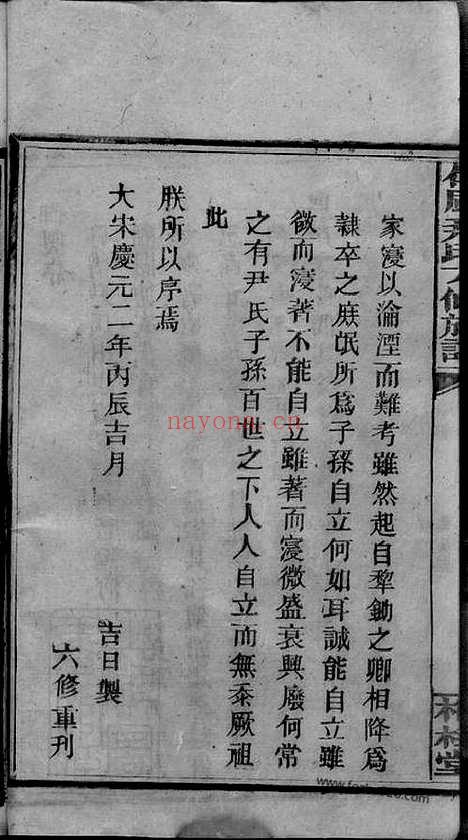 家寖以淪湮而難考雖然起自犂鋤之卿相降爲
隸卒之庻氓所爲子孫自立何如耳誠能自立雖
微而寖著不能自立雖著而寖微盛衰興廢何常
之有尹氏子孫百世之下人人自立而無忝厥祖
此
朕所以序焉
大宋慶元二年丙辰吉月
吉日製
六修重刊
nayona.cn